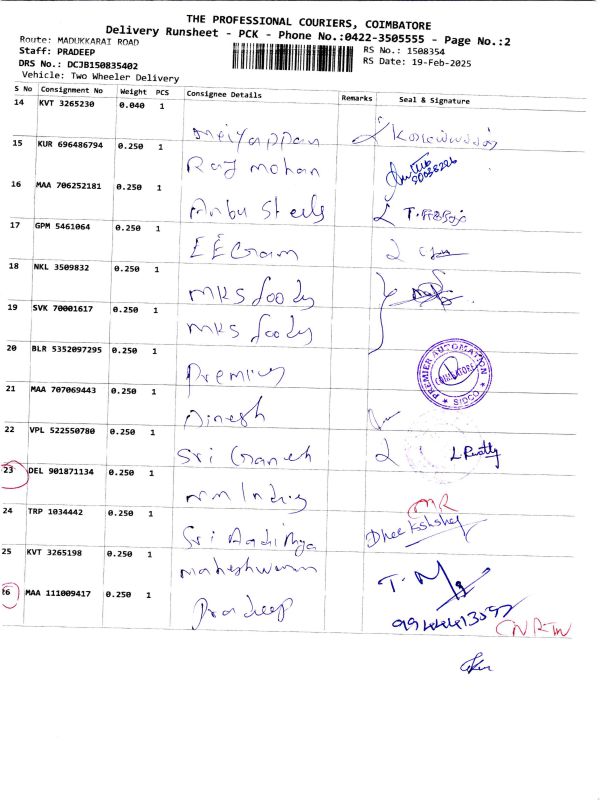 THE PROFESSIONAL COURIERS, COIMBATORE
Delivery Runsheet - PCK - Phone No.:0422-3505555 - Page No.:2
Route: MADUKKARAI ROAD
RS No.: 1508354
Staff: PRADEEP
RS Date: 19-Feb-2025
DRS No.: DCJB150835402
Vehicle: Two Wheeler Delivery
S No Consignment No Weight PCS Consignee Details Remarks Seal & Signature
14 KVT 3265230 0.040 1
Meiyappan
15 KUR 696486794 0.250 1
Raj mohan
16 MAA 706252181 0.250 1
Anbu Steels
17 GPM 5461064 0.250 1
18 NKL 3509832 0.250 1
MKS foods
19 SVK 70001617 0.250 1
MKS foods
20 BLR 5352097295 0.250 1
Premier
PREMIER AUTOMATION COIMBATORE SIDCO
21 MAA 707069443 0.250 1
Dinesh
22 VPL 522550780 0.250 1
Sri Ganesh
23 DEL 901871134 0.250 1
24 TRP 1034442 0.250 1
Sri Aadithya
25 KVT 3265198 0.250 1
Maheshwaran
26 MAA 111009417 0.250 1
Pradeep